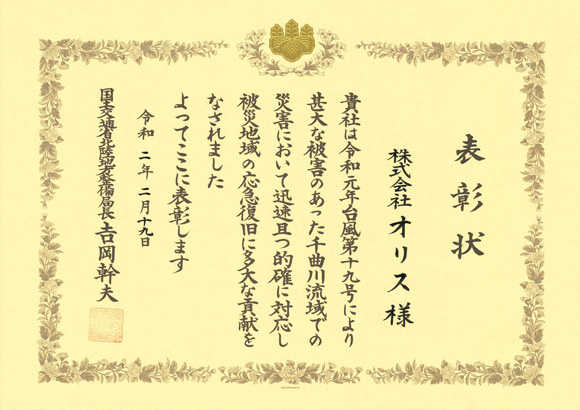 表彰状
株式会社 オリス 様
貴社は令和元年台風第十九号により
甚大な被害のあった千曲川流域での
災害において迅速且つ的確に対応し
被災地域の応急復旧に多大な貢献を
なされました
よってここに表彰します
令和二年二月十九日
国土交通省北陸地方整備局長 吉岡幹夫